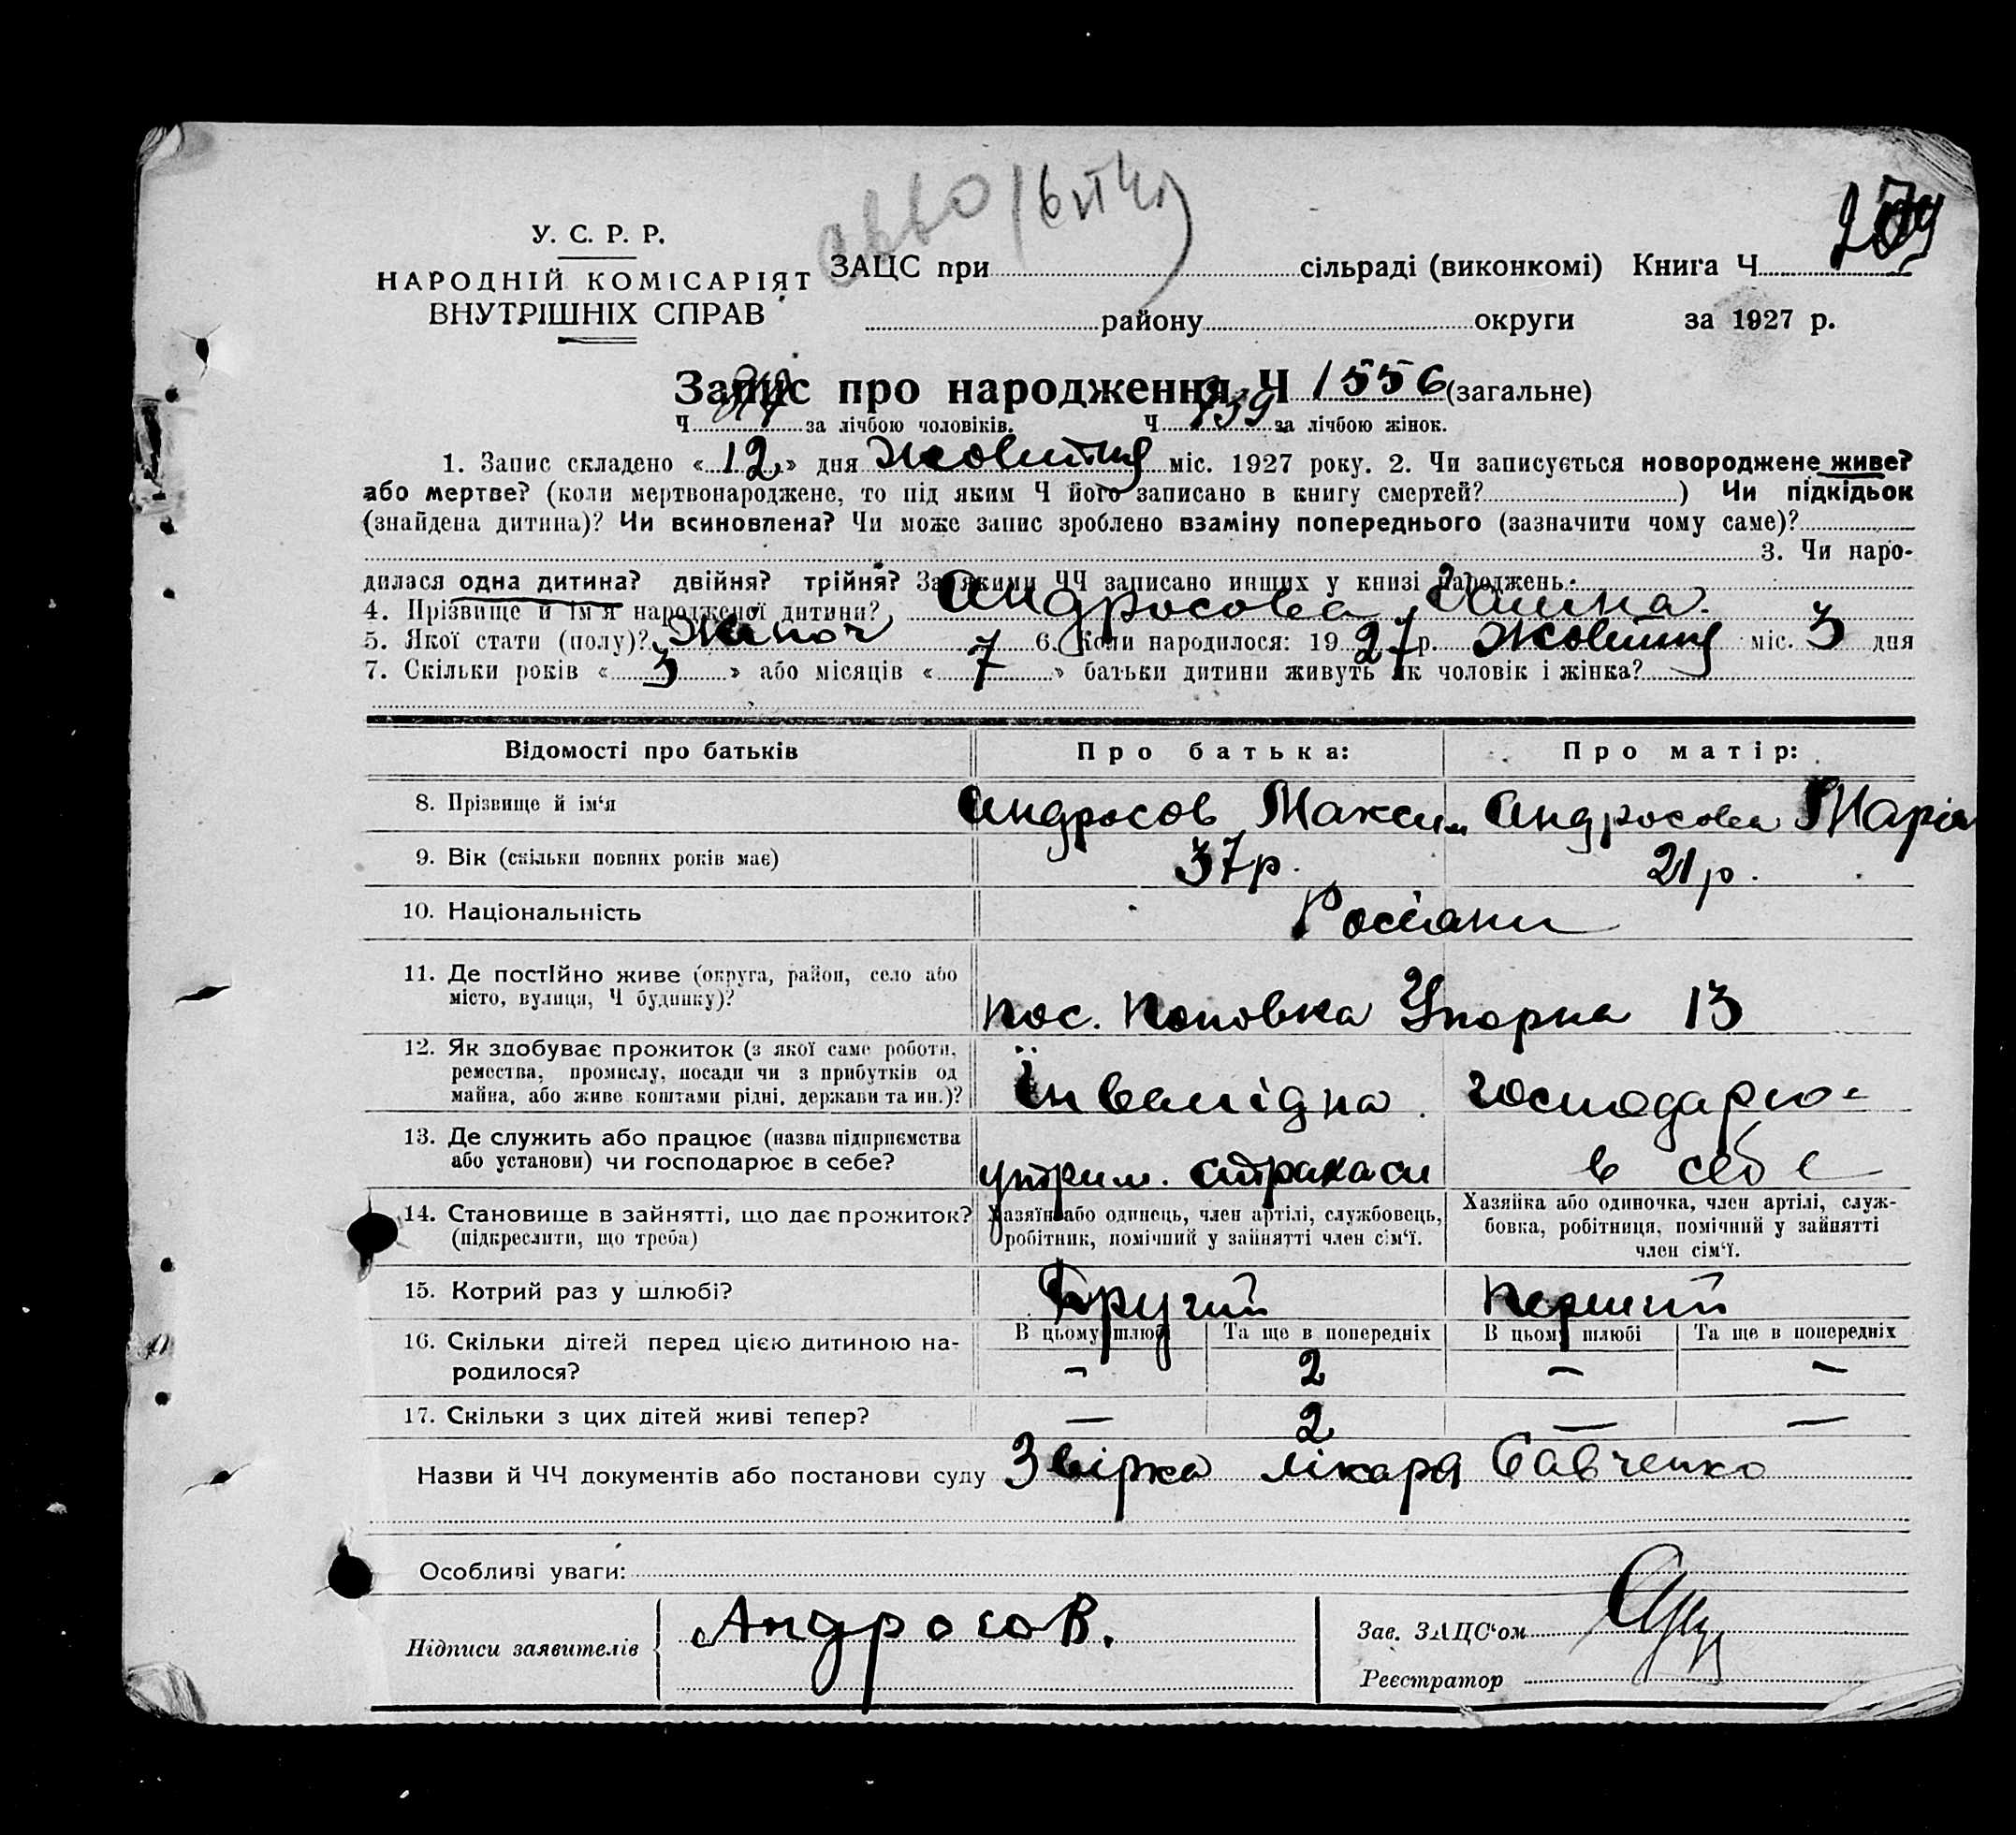 У. С. Р. Р.
НАРОДНІЙ КОМІСАРІЯТ
ВНУТРІШНІХ СПРАВ
ЗАЦС при сільраді (виконкомі) Книга Ч
району округи за 1927 р.
Запис про народження Ч 1556 (загальне)
Ч за лічбою чоловіків. Ч 739 за лічбою жінок.
1. Запис складено «12» дня Жовтня міс. 1927 року. 2. Чи записується новороджене живе?
або мертве? (коли мертвонароджене, то під яким Ч його записано в книгу смертей? ) Чи підкідьок
(знайдена дитина)? Чи всиновлена? Чи може запис зроблено взаміну попереднього (зазначити чому саме)?
3. Чи наро-
дилася одна дитина? двійня? трійня? За якими ЧЧ записано инших у книзі народжень:
4. Прізвище й ім'я народженої дитини? Андросова
5. Якої стати (полу)? Жіноч 6. Коли народилося: 1927 р. Жовтня міс. 3 дня
7. Скільки років «3» або місяців «7» батьки дитини живуть як чоловік і жінка?
Відомості про батьків Про батька: Про матір:
8. Прізвище й ім'я Андросов Максим Андросова Марія
9. Вік (скільки повних років має) 37 р. 21 р.
10. Національність Росіяни
11. Де постійно живе (округа, район, село або
місто, вулиця, Ч будинку)? пос. Поповка Упорна 13
12. Як здобуває прожиток (з якої саме роботи,
ремества, промислу, посади чи з прибутків од
майна, або живе коштами рідні, держави та ин.)? Інвалідна господарює
13. Де служить або працює (назва підприємства
або установи) чи господарює в себе? утрим. страхкаси в себе
14. Становище в зайнятті, що дає прожиток?
(підкреслити, що треба)
Хазяїн або одинець, член артілі, службовець,
робітник, помічний у зайнятті член сім'ї.
Хазяйка або одиночка, член артілі, служ-
бовка, робітниця, помічний у зайнятті
член сім'ї.
15. Котрий раз у шлюбі? Другий перший
В цьому шлюбі Та ще в попередніх В цьому шлюбі Та ще в попередніх
16. Скільки дітей перед цією дитиною на-
родилося? – 2 – –
17. Скільки з цих дітей живі тепер? – 2 – –
Назви й ЧЧ документів або постанови суду Звірка лікаря Савченко
Особливі уваги:
Підписи заявителів Андросов.
Зав. ЗАЦС'ом
Реєстратор